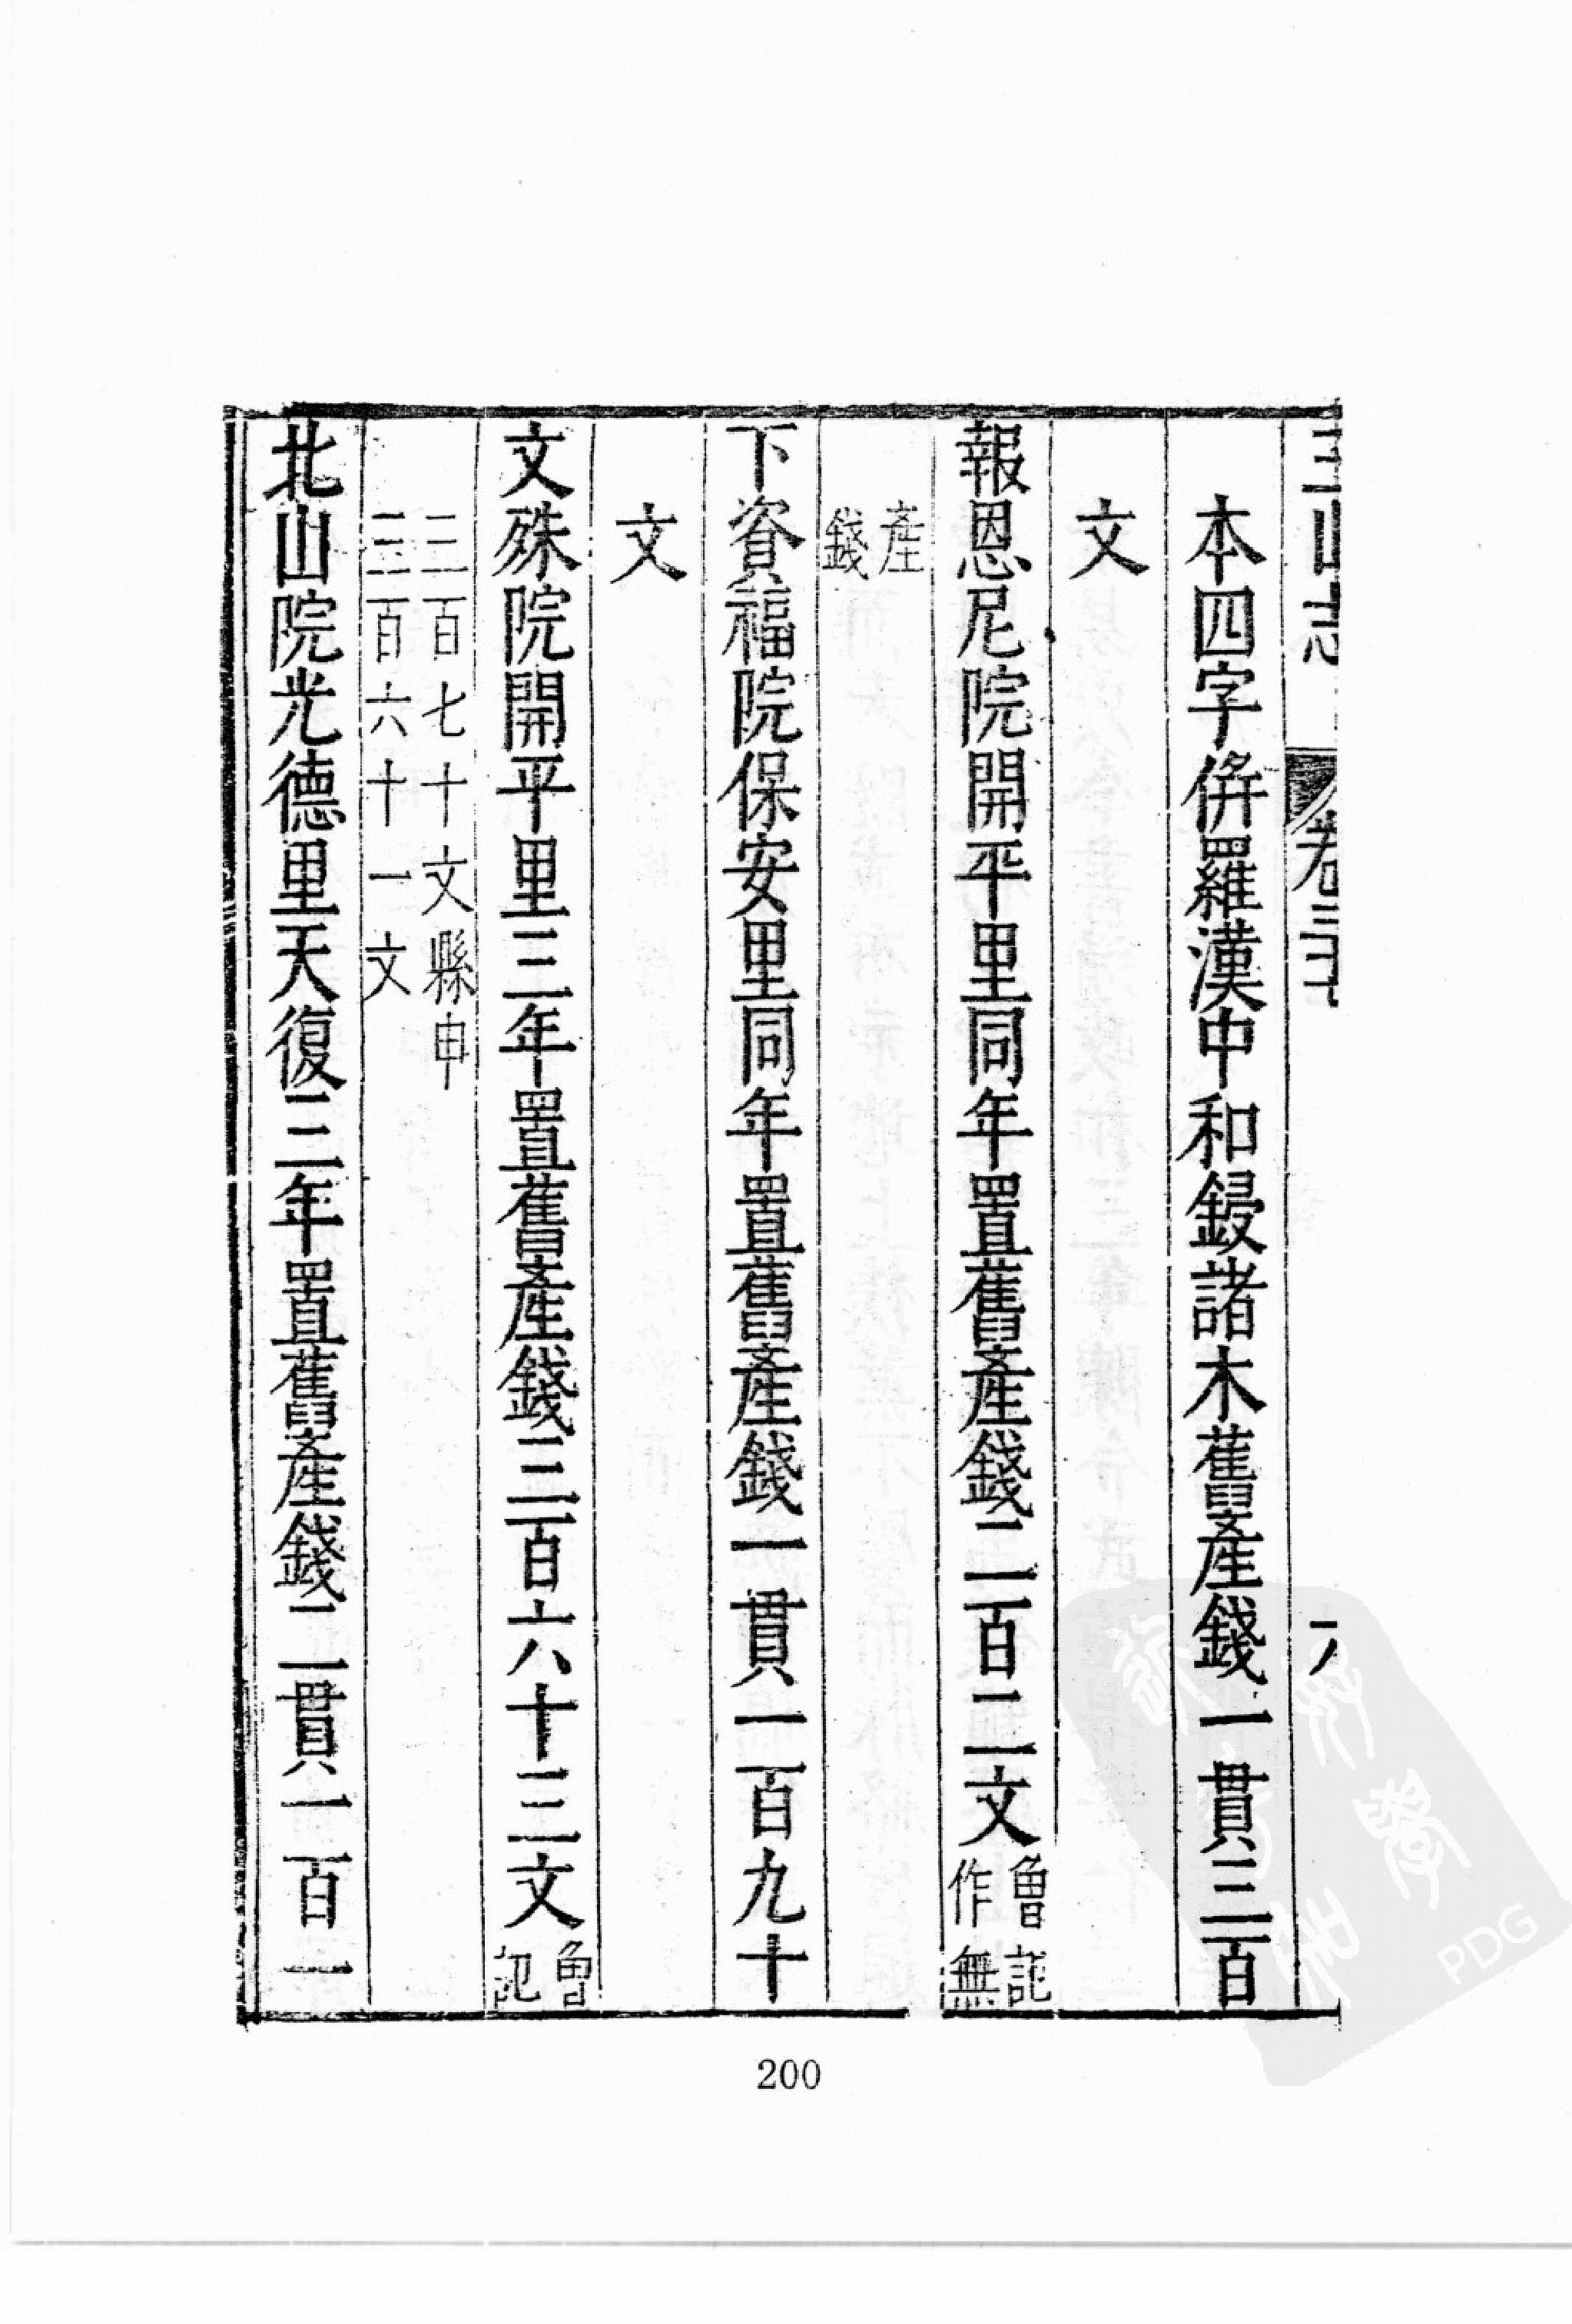 三山志 卷三十
本四字併羅漢中和鋟諸木舊產錢一貫三百
文
報恩尼院開平里同年置舊產錢二百二文魯記作無
產錢
下資福院保安里同年置舊產錢一貫一百九十
文
文殊院開平里三年置舊產錢三百六十三文魯記
三百七十文縣申
三百六十一文
北山院光德里天復三年置舊產錢二貫一百一
200
PDG